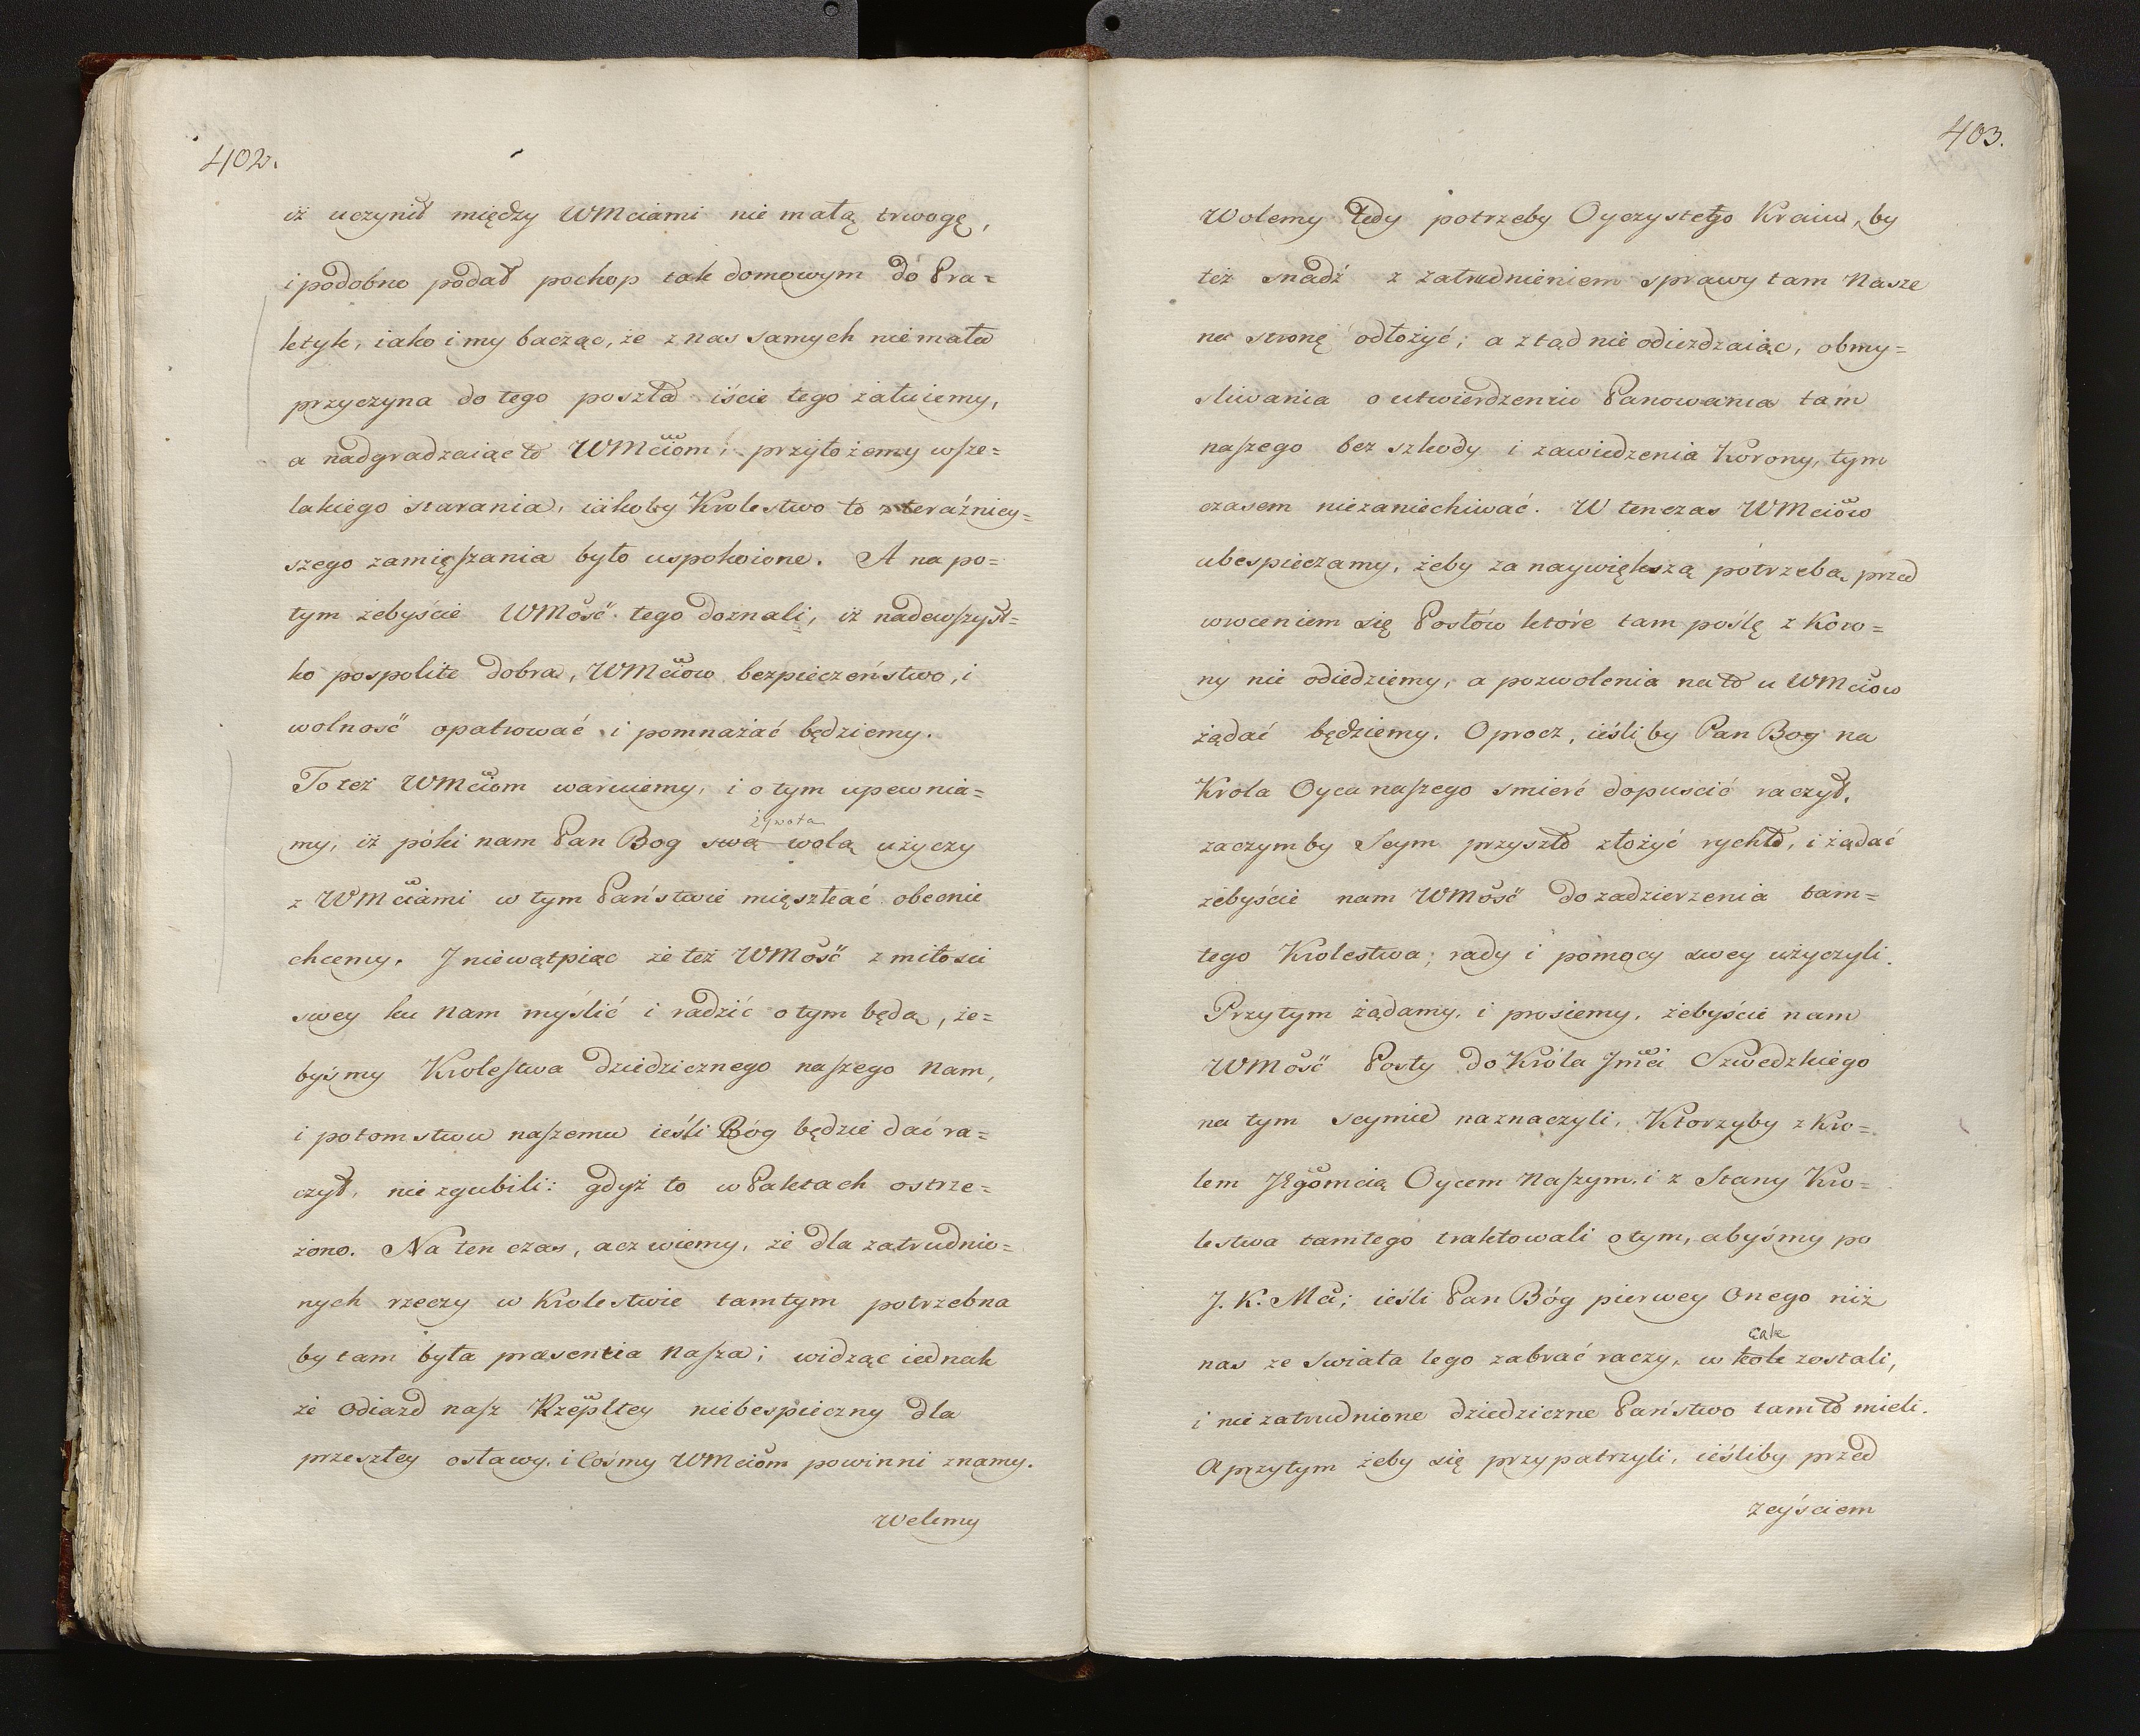 402.
iż uczynił między WMciami nie małą trwogę,
i podobno podał pochop tak domowym do Pra=
ktyk, iako i my bacząc, że z nas samych nie mała
przyczyna do tego poszła iście tego żałuiemy,
a nadgradzaiąc to WMciom, przyłożemy wsze=
lakiego starania, iakoby Krolestwo to z teraźniey=
szego zamięszania było uspokoione. A na po=
tym żebyście WMość tego doznali, iż nadewszyst=
ko pospolite dobra, WMciow bezpieczeństwo, i
wolność opatrować i pomnażać będziemy.
To też WMciom waruiemy, i o tym upewnia=
żywota
my, iż póki nam Pan Bog swą wolą użyczy
z WMciami w tym Państwie mięszkać obecnie
chcemy. J niewątpiąc że też WMość z miłości
swey ku nam myślić i radzić o tym będą, że=
byśmy Krolestwa dziedzicznego naszego nam,
i potomstwu naszemu ieśli Bóg będzie dać ra=
czył, nie zgubili: gdyż to w Paktach ostrze=
żono. Na ten czas, acz wiemy, że dla zatrudnio=
nych rzeczy w Krolestwie tamtym potrzebna
by tam była praesentia nasza; widząc iednak
że odiazd nasz Rzepltey niebespieczny dla
przeszłey ostawy, i cośmy WMciom powinni znamy.
Wolemy
403.
Wolemy tedy potrzeby Oyczystego Kraiu, by
też snadź z zatrudnieniem sprawy tam Nasze
na stronę odłożyć; a ztąd nie odieżdzaiąc, obmy=
sliwania o utwierdzeniu Panowania tam
naszego bez szkody i zawiedzenia Korony, tym
czasem niezaniechiwać. W tenczas WMciow
ubespieczamy, żeby za naywiększą potrzebą, przed
wroceniem się Posłów które tam poślę z Koro=
ny nie odiedziemy, a pozwolenia na to u WMciow
żądać będziemy. Oprocz, ieśliby Pan Bog na
Krola Oyca naszego smierć dopuscić raczył,
zaczymby Seym przyszło złożyć rychło, i żądać
żebyście nam WMość do zadzierzenia tam=
tego Krolestwa; rady i pomocy swey użyczyli.
Przy tym żądamy, i prosiemy, żebyście nam
WMość Posły do Króla Jmci Szwedzkiego
na tym seymie naznaczyli, Ktorzyby z Kro=
lem Jegomcią Oycem Naszym, i z Stany Kro=
lestwa tamtego traktowali o tym, abyśmy po
J. K. Mci; ieśli Pan Bóg pierwey Onego niż
cale
nas ze swiata tego zabrać raczy, w kole zostali,
i nie zatrudnione dziedziczne Państwo tamto mieli.
A przytym żeby się przypatrzyli, ieśliby przed
zeyściem